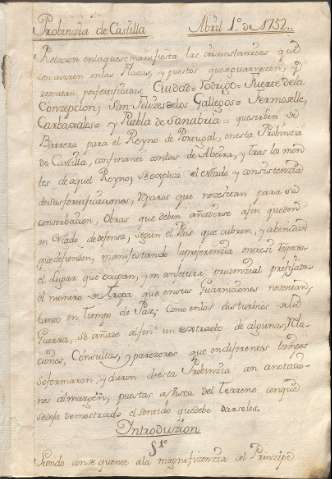 Probinsia de Castilla Abril 1.º de 1752..
Relacion enlaque se manifiesta las circunstancias, que
concurren en las Plazas, y puestos que guarnecen, y
Ciudad-Rodrigo, Fuerte de la
Concepcion, San Felizes de los Gallegos, Fermoselle,
Carvajales, y Puebla de Sanabria
Barrera para el Reyno de Portugal, en esta Probinsia
de Castilla, confinante con las de Abeira, y tras los mon
tes de aquel Reyno, se explica el estado y consistencia
de sus fortificaciones, Obras que necesitan para su
conserbacion, Obras que deben añadirse a fin queden
en estado de defensa, segun el Pais que cubren, y abenidas
que defienden, manifestando
el lugar que ocupan, y
el numero de Tropa que en sus Guarniciones necesitan,
tanto en Tiempo de Paz, como en los disturbios de la
Guerra, se añade a fin un extracto de algunas Rela
ciones, Consultas, y pareceres que en diferentes tiempos
se formaron, y dieron de esta Probinsia con anotacio
nes al margen, puestas a vista del Terreno conque
se deja demostrado el sentido que debe darseles.
Introduccion
§ 1º
Siendo consequente a la magnificencia del Principe